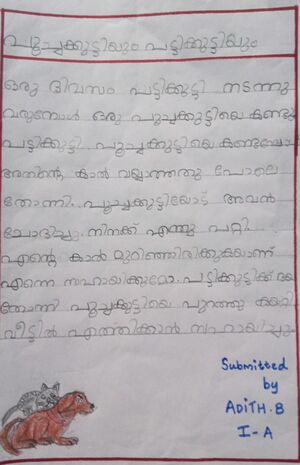 പൂച്ചക്കുട്ടിയും പട്ടിക്കുട്ടിയും
ഒരു ദിവസം പട്ടിക്കുട്ടി നടന്നു
വരുമ്പോൾ ഒരു പൂച്ചക്കുട്ടിയെ കണ്ടു
പട്ടിക്കുട്ടി. പൂച്ചക്കുട്ടിയെ കണ്ടപ്പോ
അതിന്റെ കാൽ വയ്യാത്തതു പോലെ
തോന്നി. പൂച്ചക്കുട്ടിയോട് അവൻ
ചോദിച്ചു. നിനക്ക് എന്തു പറ്റി.
എന്റെ കാൽ മുറിഞ്ഞിരിക്കുകയാണ്
എന്നെ സഹായിക്കുമോ. പട്ടിക്കുട്ടിക്ക് ദയ
തോന്നി പൂച്ചക്കുട്ടിയെ പുറത്തു കയറ്റി
വീട്ടിൽ എത്തിക്കാൻ സഹായിച്ചു.
Submitted
by
ADITH.B
I-A